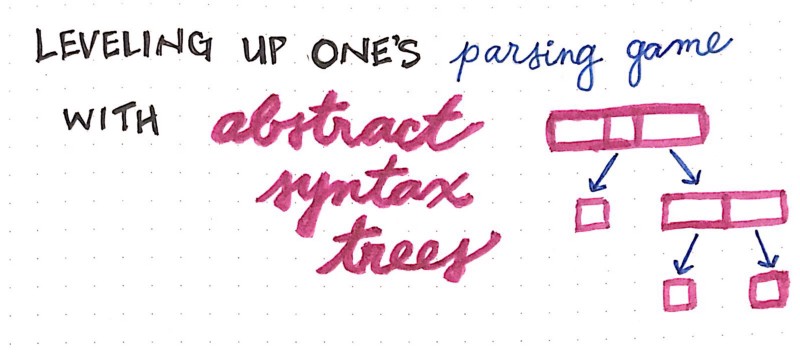 LEVELING UP ONE'S parsing game
WITH abstract
syntax
trees